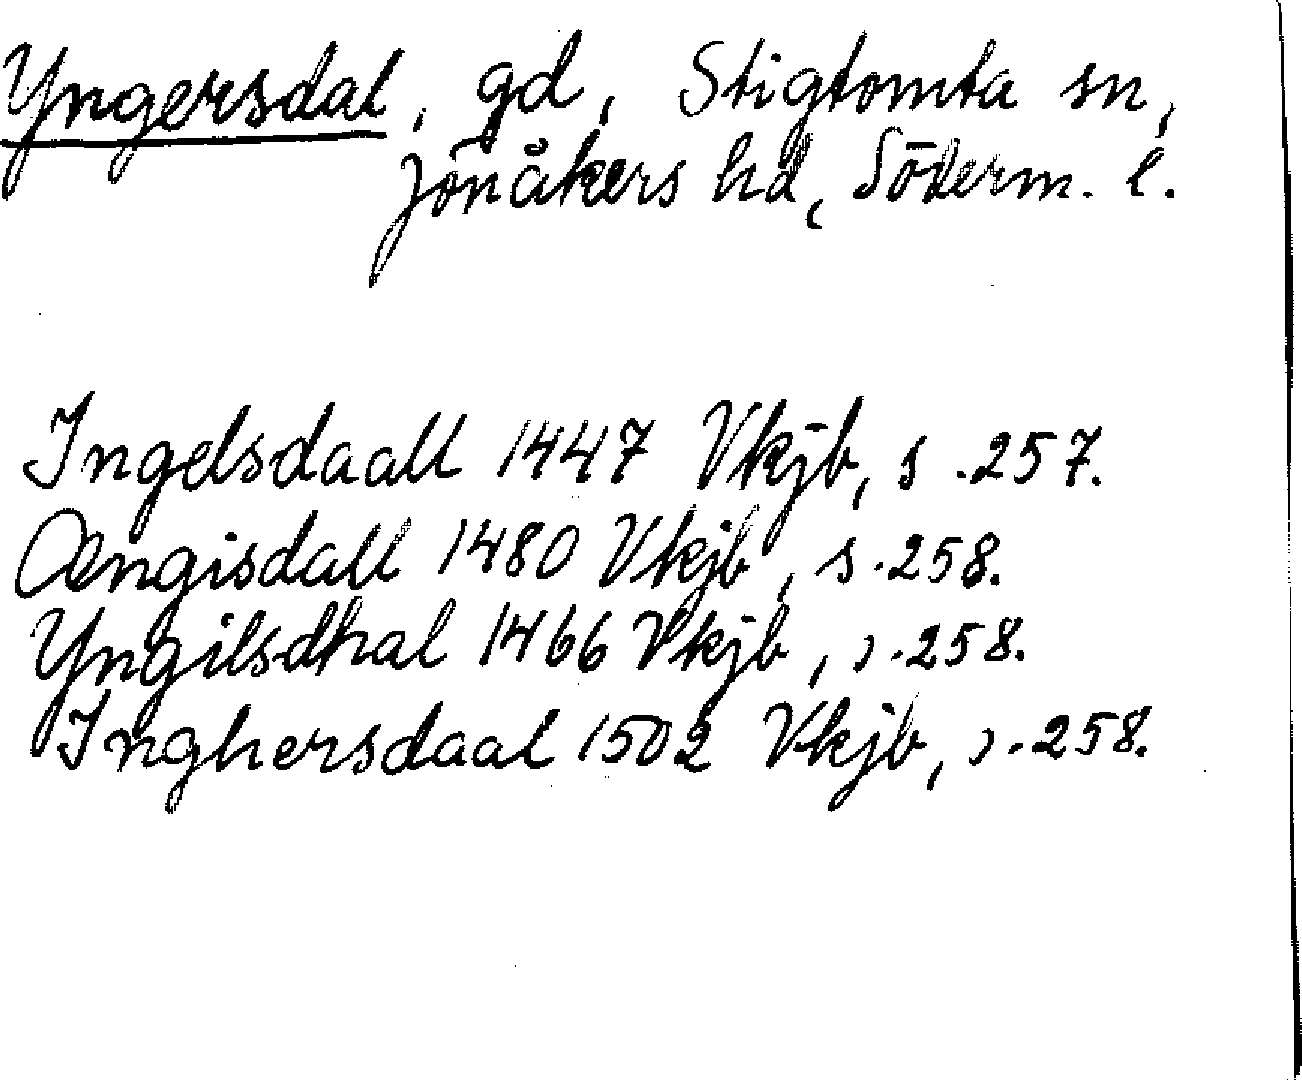 Yngersdal, gd, Stigtomta sn,
Jönåkers hd, Söderm. l.
Ingelsdaall 1447 Vkjb, s. 257.
Ængisdall 1480 Vkjb, s. 258.
Yngilsdhal 1466 Vkjb, s. 258.
Inghersdaal 1502 Vkjb, s. 258.